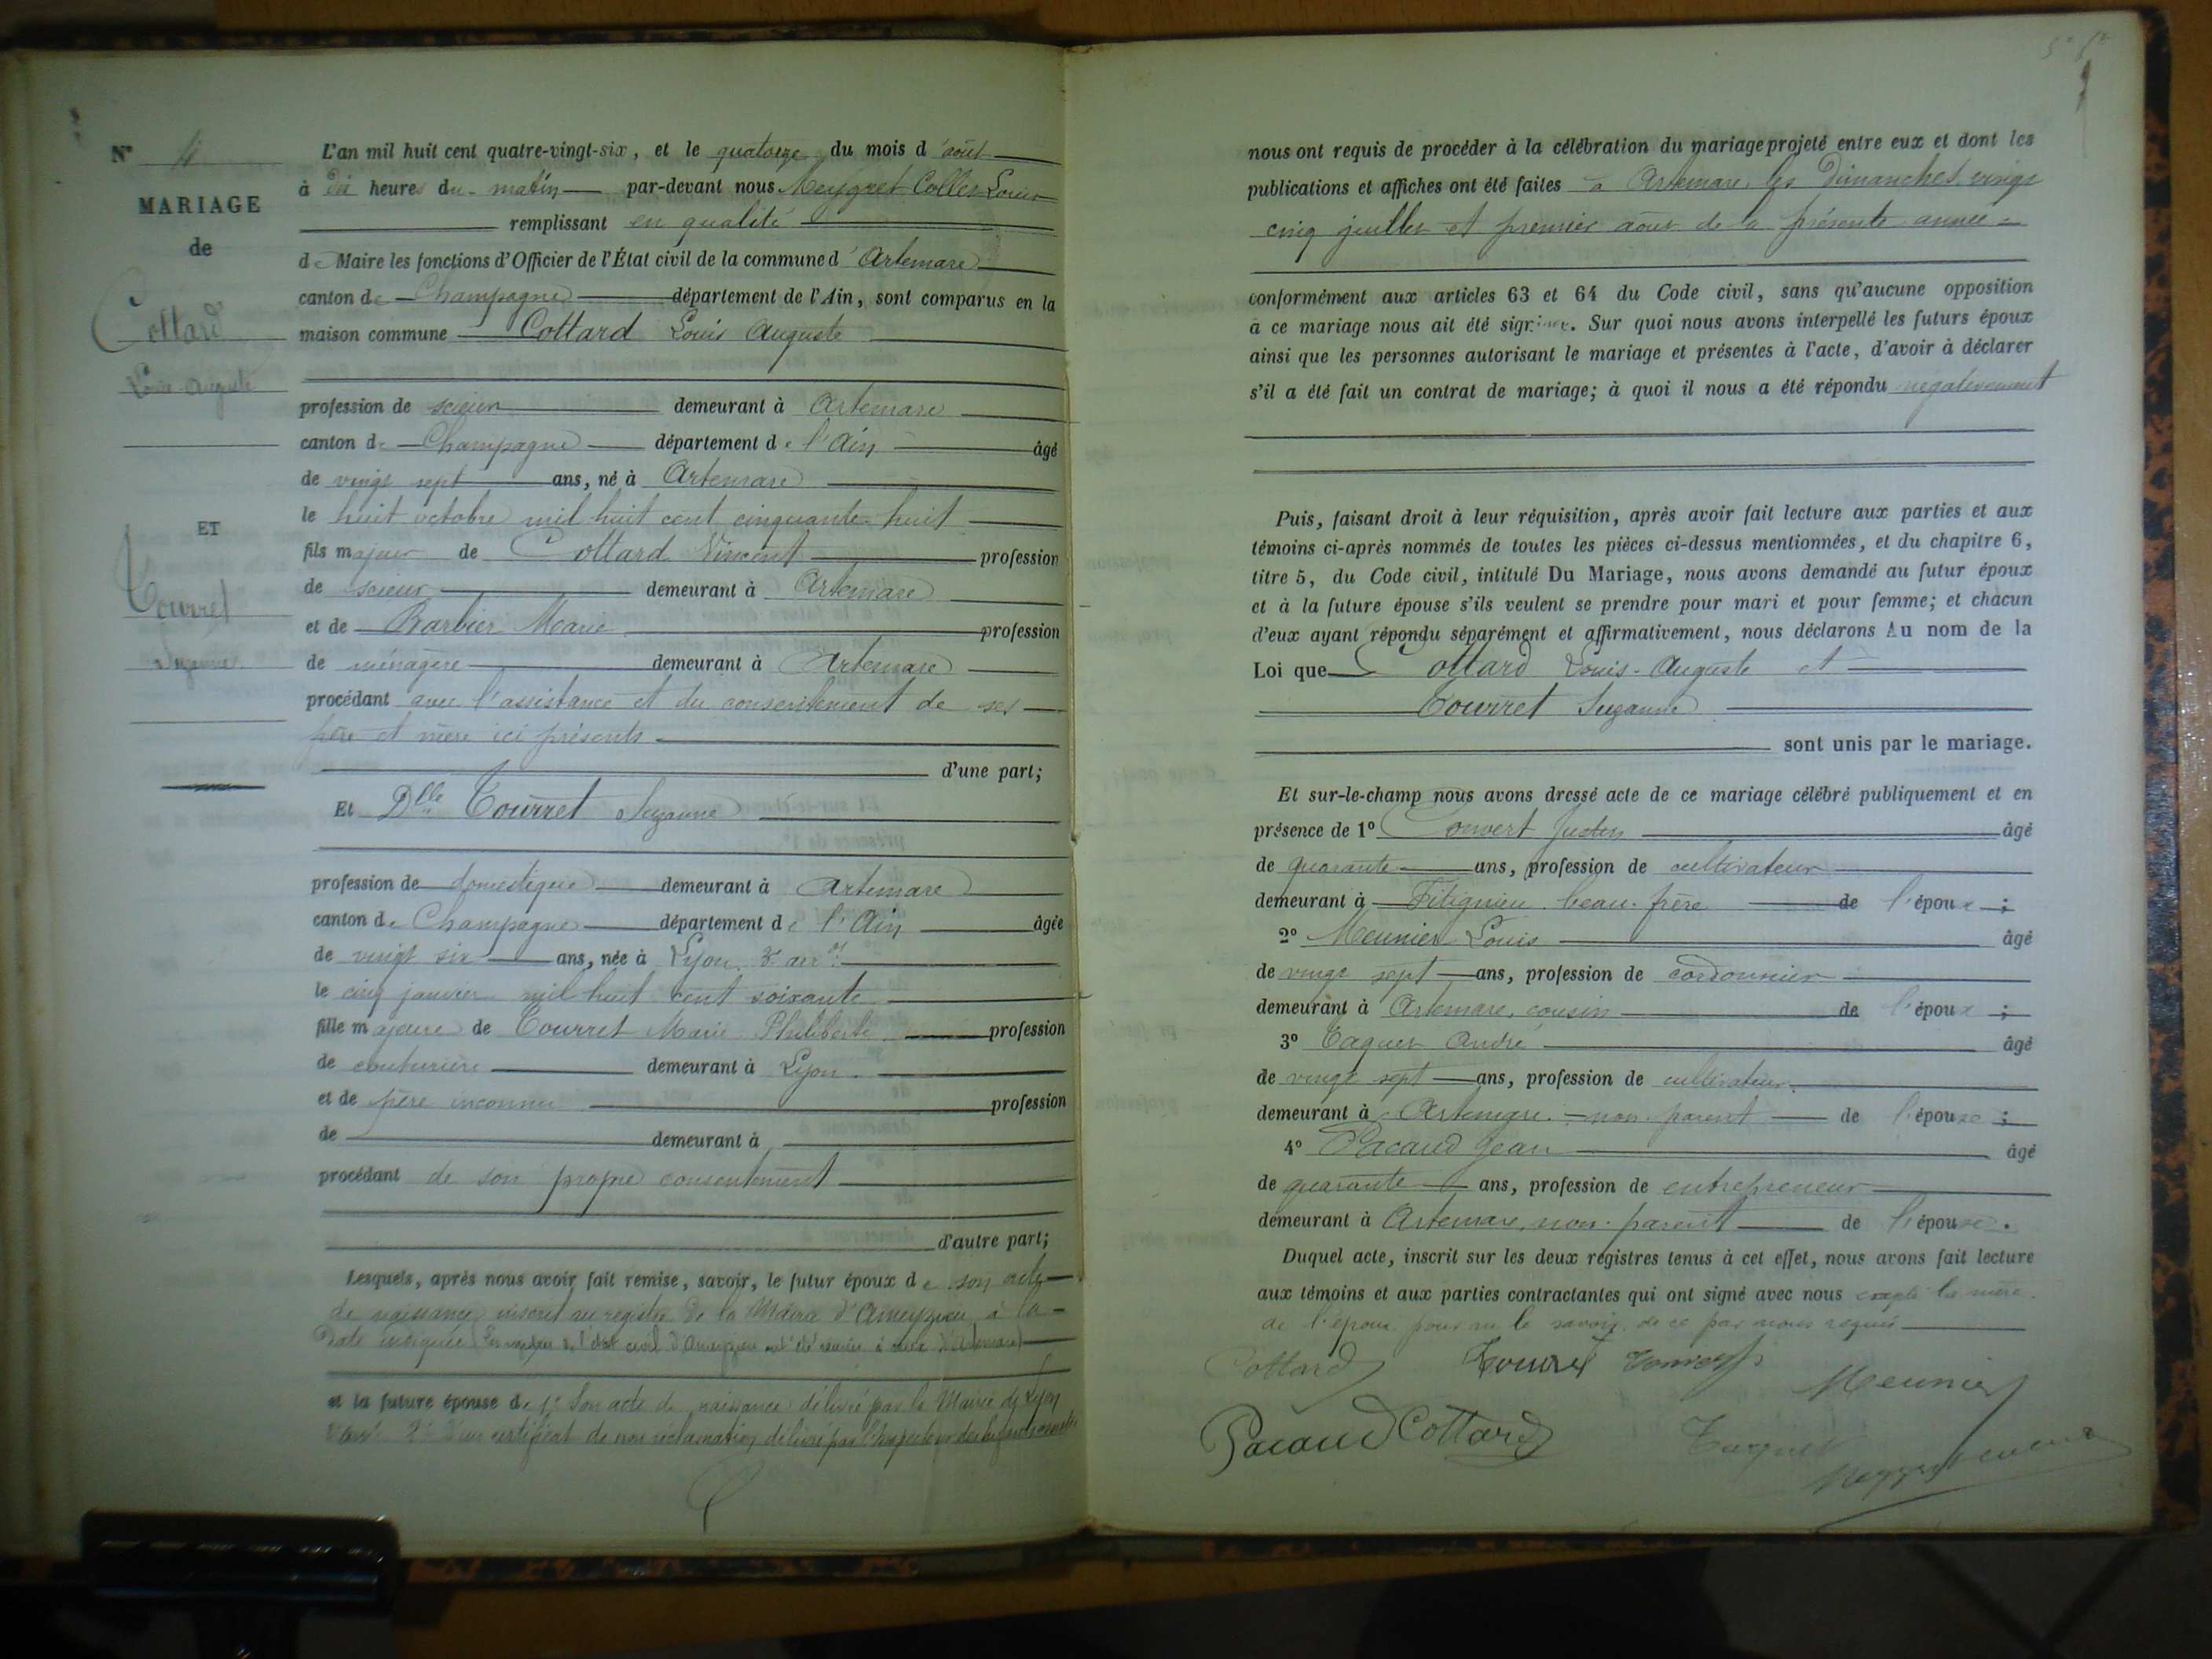 N° 4
MARIAGE
de
Cottard
Louis Auguste
ET
Tourret
Suzanne
L'an mil huit cent quatre-vingt-six, et le quatorze du mois d'août
à dix heures du matin par-devant nous Meygret Collet Louis
remplissant en qualité
de Maire les fonctions d'Officier de l'État civil de la commune d'Artemare
canton de Champagne département de l'Ain, sont comparus en la
maison commune Cottard Louis Auguste
profession de scieur demeurant à Artemare
canton de Champagne département de l'Ain âgé
de vingt sept ans, né à Artemare
le huit octobre mil huit cent cinquante huit
fils majeur de Cottard Vincent profession
de scieur demeurant à Artemare
et de Barbier Marie profession
de ménagère demeurant à Artemare
procédant avec l'assistance et du consentement de ses
père et mère ici présents
d'une part;
Et Dlle Tourret Suzanne
profession de domestique demeurant à Artemare
canton de Champagne département de l'Ain âgée
de vingt six ans, née à Lyon 3e arrt
le cinq janvier mil huit cent soixante
fille majeure de Tourret Marie Philiberte profession
de couturière demeurant à Lyon
et de père inconnu profession
de demeurant à
procédant de son propre consentement
d'autre part;
Lesquels, après nous avoir fait remise, savoir, le futur époux de son acte
de naissance inscrit au registre de la Mairie d'Ameyzieu à la
date indiquée (Les registres de l'état civil d'Ameyzieu ont été réunis à ceux d'Artemare)
et la future épouse de 1° Son acte de naissance délivré par la Mairie de Lyon
2° D'un certificat de non réclamation délivré par l'Inspecteur des Enfants assistés
nous ont requis de procéder à la célébration du mariage projeté entre eux et dont les
publications et affiches ont été faites à Artemare, les Dimanches vingt
cinq juillet et premier août de la présente année
conformément aux articles 63 et 64 du Code civil, sans qu'aucune opposition
à ce mariage nous ait été signifiée. Sur quoi nous avons interpellé les futurs époux
ainsi que les personnes autorisant le mariage et présentes à l'acte, d'avoir à déclarer
s'il a été fait un contrat de mariage; à quoi il nous a été répondu négativement
Puis, faisant droit à leur réquisition, après avoir fait lecture aux parties et aux
témoins ci-après nommés de toutes les pièces ci-dessus mentionnées, et du chapitre 6,
titre 5, du Code civil, intitulé Du Mariage, nous avons demandé au futur époux
et à la future épouse s'ils veulent se prendre pour mari et pour femme; et chacun
d'eux ayant répondu séparément et affirmativement, nous déclarons Au nom de la
Loi que Cottard Louis-Auguste et
Tourret Suzanne
sont unis par le mariage.
Et sur-le-champ nous avons dressé acte de ce mariage célébré publiquement et en
présence de 1° Convert Justin âgé
de quarante ans, profession de cultivateur
demeurant à Fitignieu beau-frère de l'époux;
2° Meunier Louis âgé
de vingt sept ans, profession de cordonnier
demeurant à Artemare, cousin de l'époux;
3° Taquet André âgé
de vingt sept ans, profession de cultivateur
demeurant à Artemare non parent de l'épouse;
4° Pacaud Jean âgé
de quarante ans, profession de entrepreneur
demeurant à Artemare, non parent de l'épouse.
Duquel acte, inscrit sur les deux registres tenus à cet effet, nous avons fait lecture
aux témoins et aux parties contractantes qui ont signé avec nous excepté la mère
de l'époux pour ne le savoir, de ce par nous requis
Cottard Tourret Convert
Meunier
Pacaud Cottard Taquet